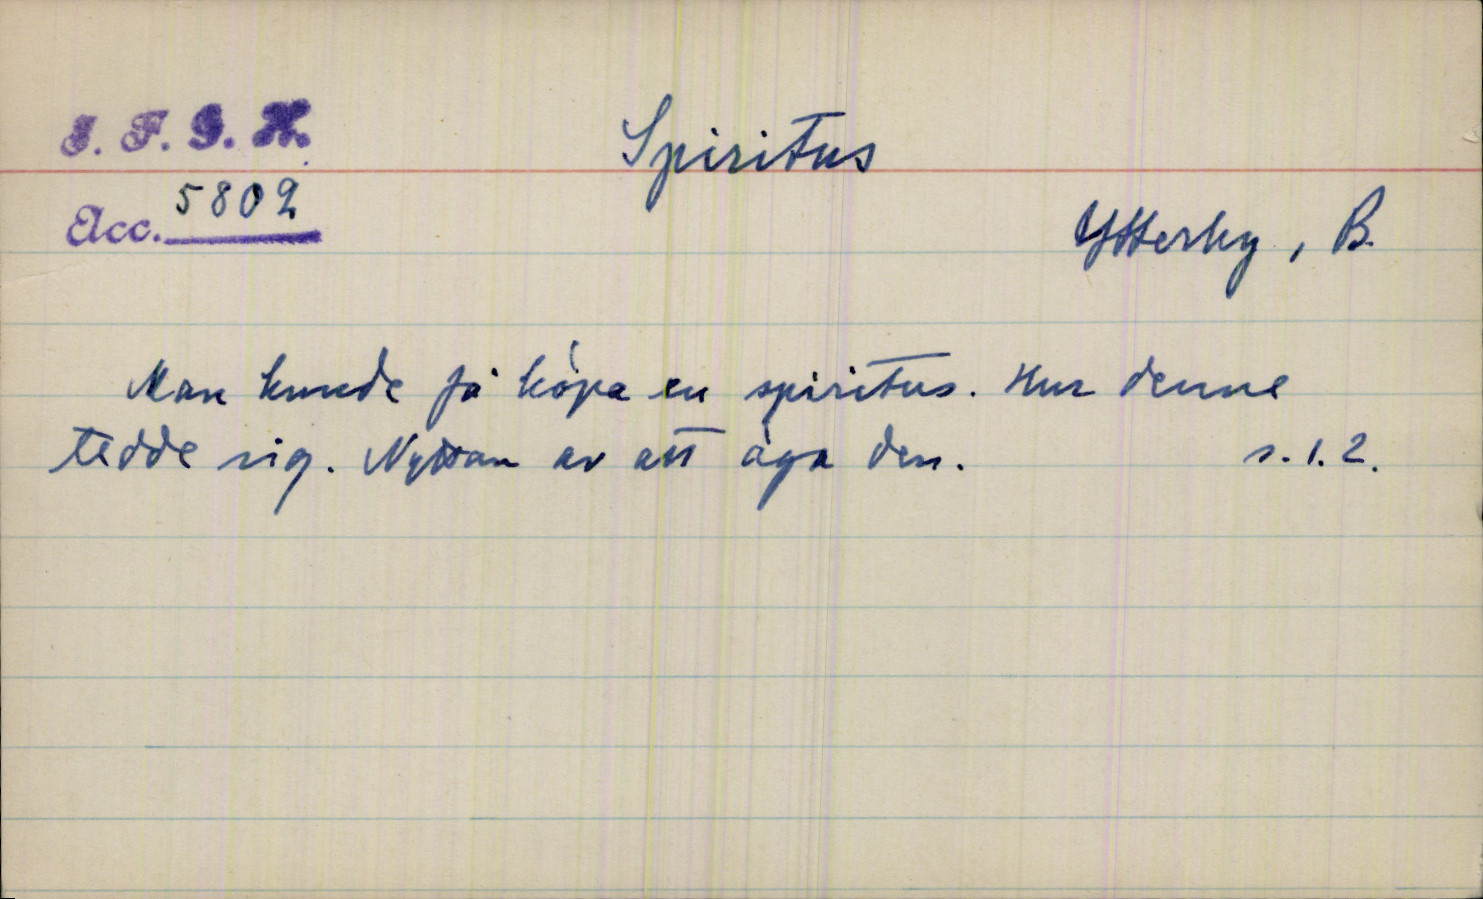 I. F. G. H.
Spiritus
Acc. 5802
Ytterby, B.
Man kunde få köpa en spiritus. Hur denne
tedde sig. Nyttan av att äga den. s. 1.2.